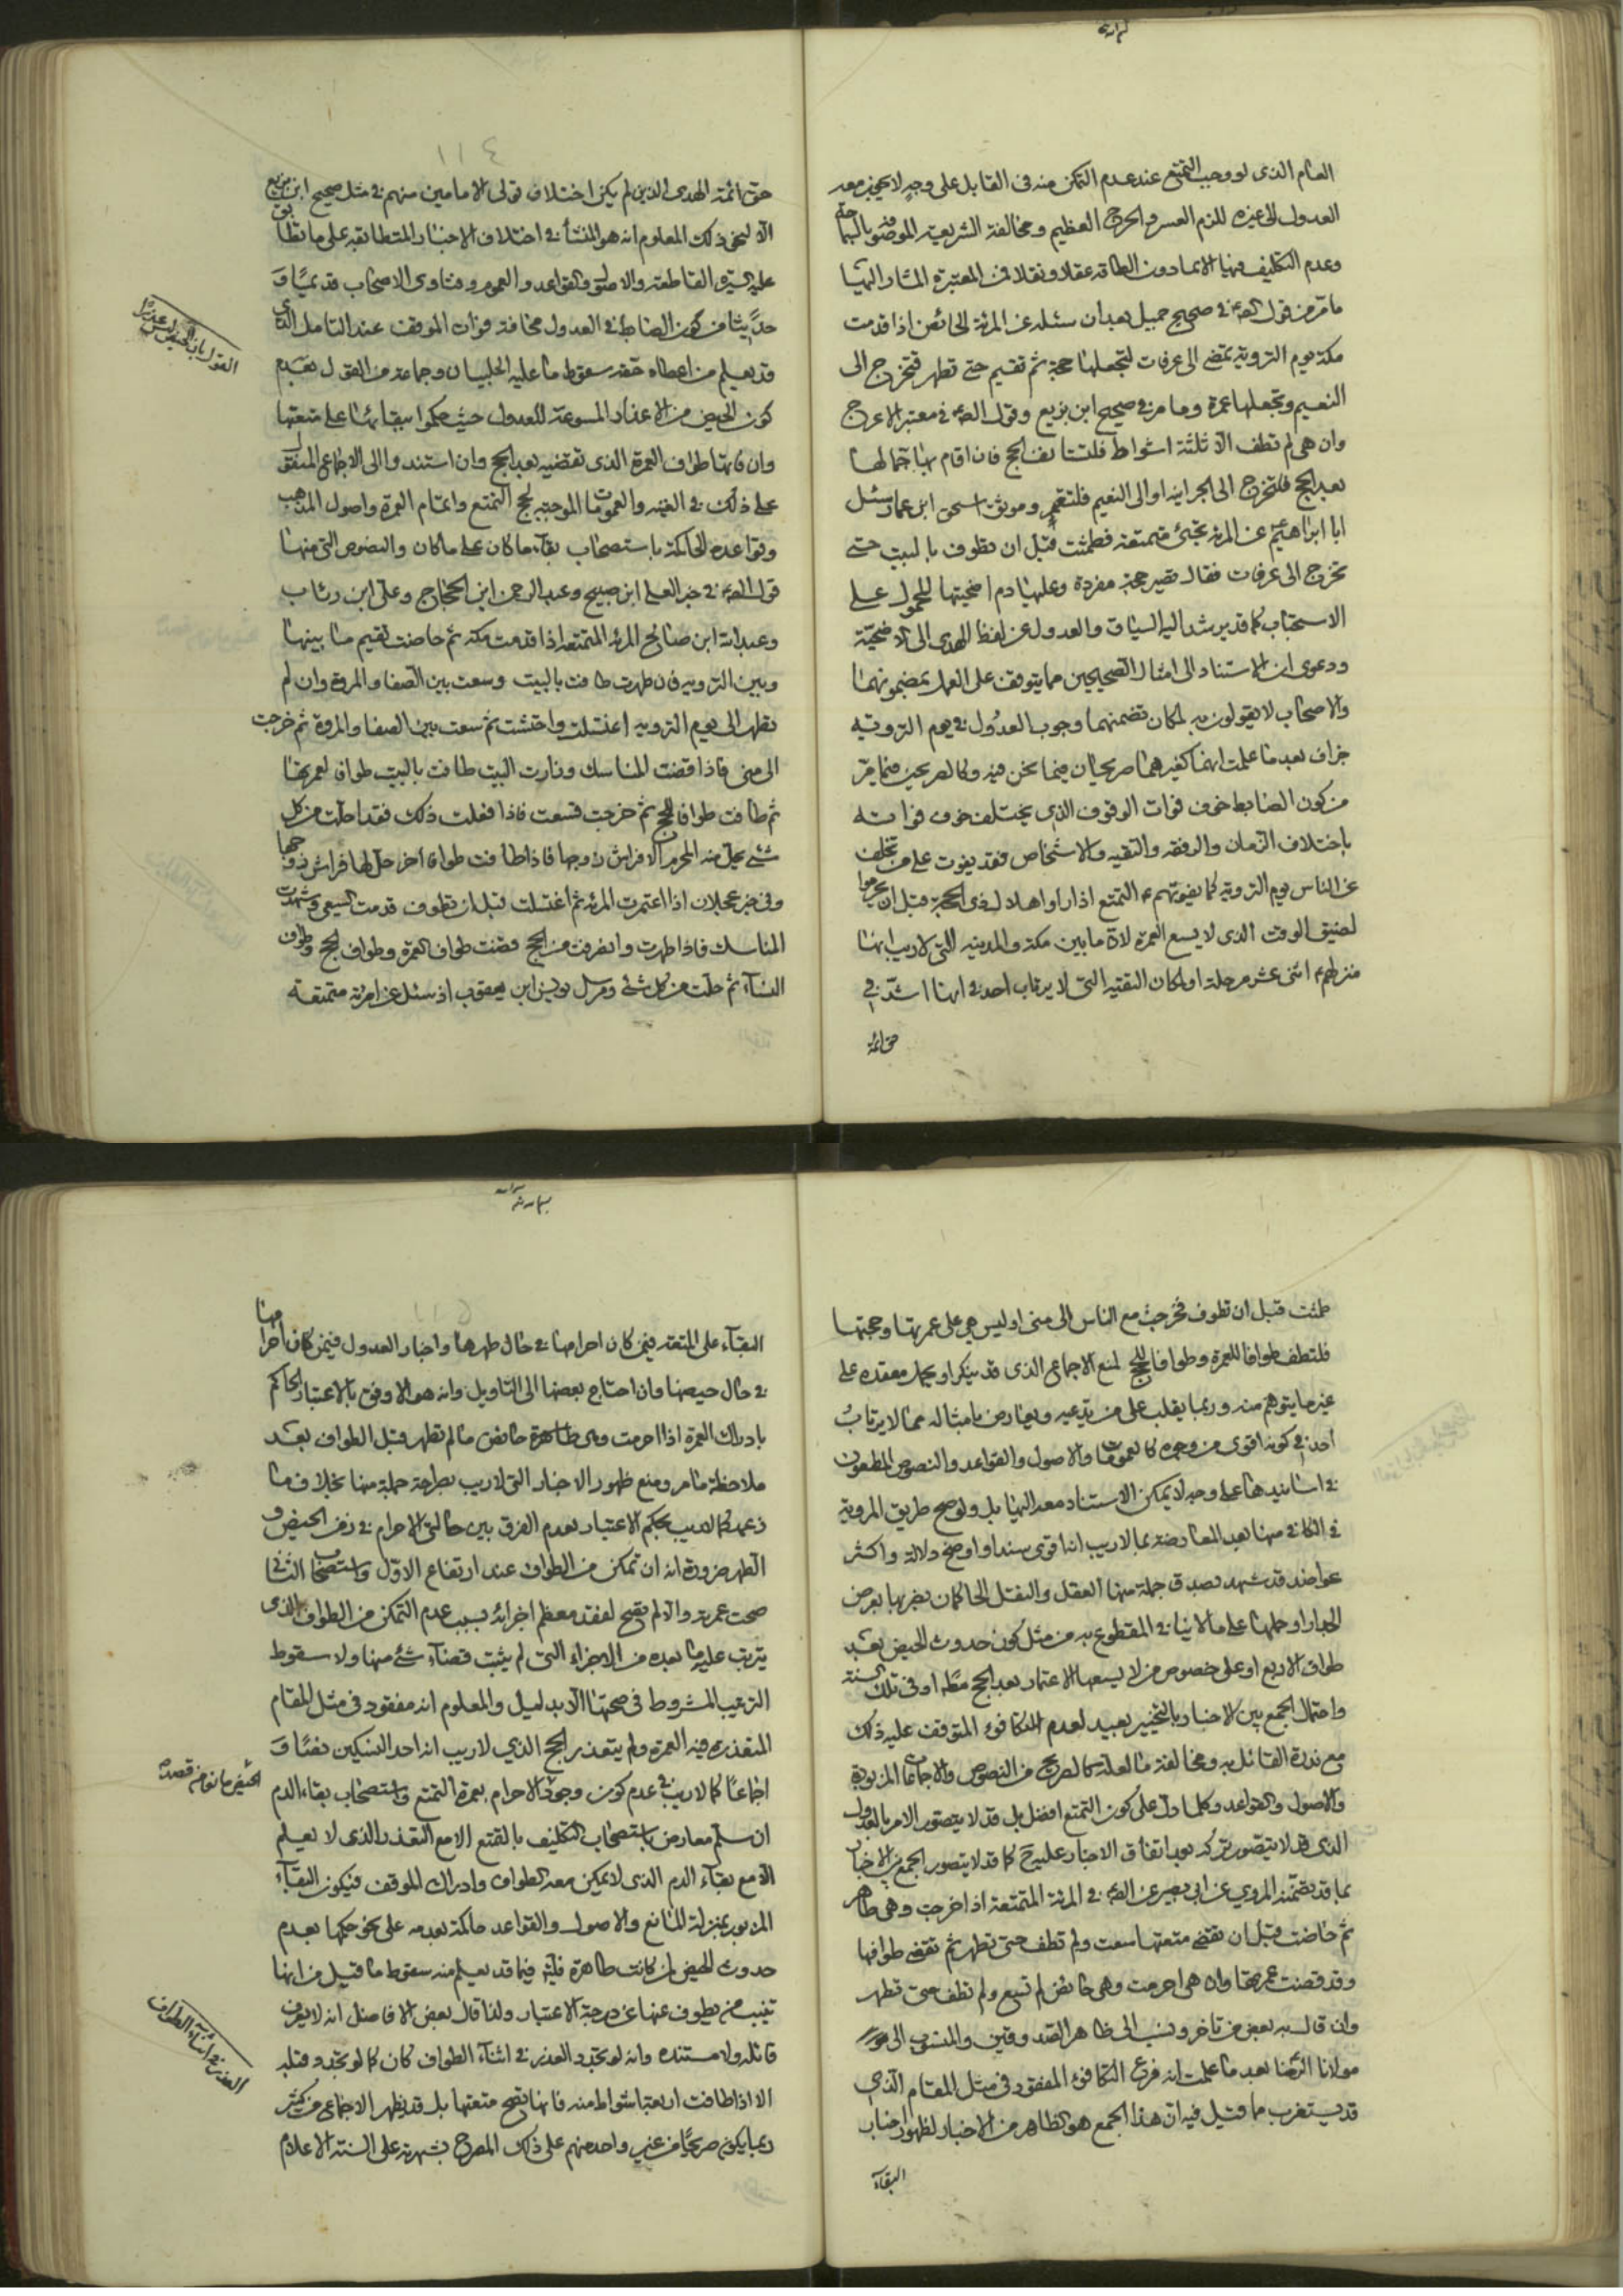 العام الذى لو وجب التمتع عند عدم التمكن منه فى القابل على وجه لا يجوز معه
العدول الى غيره للزم العسر والحرج العظيم ومخالفة الشريعة
وعدم التكليف فيها الا بما دون الطاقة عقلا ونقلا فى المعتبرة المشار اليها
ما مر من قول الصء فى صحيح جميل بعد ان سئله عن المرئة الحائض اذا قدمت
مكة يوم التروية تمضى الى عرفات لتجعلها حجة ثم تقيم حتى تطهر فتخرج الى
التنعيم وتجعلها عمرة وما مر فى صحيح ابن بزيع وقول الصء فى معتبر الاعرج
وان هى لم تطف الا ثلثة اشواط فلتستانف الحج فان اقام بها جمالها
بعد الحج فلتخرج الى الجعرانة او الى التنعيم فلتعتمر وموثق اسحق ابن عمار سئل
ابا ابراهيم عن المرئة تجئ متمتعة فطمثت قبل ان تطوف بالبيت حتى
تخرج الى عرفات فقال تصير حجة مفردة وعليها دم اضحيتها المحمول على
الاستحباب كما قد يرشد اليه السياق والعدول عن لفظ الهدى الى الاضحية
ودعوى ان الاستناد الى امثال الصحيحين مما يتوقف على العمل بمضمونهما
والاصحاب لا يقولون به لمكان تضمنهما وجوب العدول فى يوم التروية
جزاف بعد ما علمت انهما كغيرهما صريحان فيما نحن فيه وكالصريحين فيما مر
من كون الضابط خوف فوات الوقوف الذى يختلف خوف فواته
باختلاف الزمان والرفقة والتقية والاشخاص فقد يفوت على من تخلف
عن الناس يوم التروية كما يفوتهم ء التمتع اذا راوا هلال ذى الحجة قبل ان يحرموا
لضيق الوقت الذى لا يسع العمرة لان ما بين مكة والمدينة التى لا ريب انها
منزلهم اثنى عشر مرحلة او لمكان التقية التى لا يرتاب احد فى انها اشد فى
حق ائمة
١١٤
حق ائمة الهدى الذين لم يكن اختلاف قولى الامامين منهم فى مثل صحيح ابن بزيع
الا لنحو ذلك المعلوم انه هو المنشأ فى اختلاف الاخبار المتطابقة على ما تطابق
عليه السيرة القاطعة والاصول والقواعد والعموم وفتاوى الاصحاب قديما و
حديثا من كون الضابط فى العدول مخافة فوات الموقف عند التامل الذى
قد يعلم من اعطاه حقه سقوط ما عليه الحلبيان وجماعة من القول بعدم
كون الحيض من الاعذار المسوغة للعدول حيث حكموا ببقائها على متعتها
وان فاتها طواف العمرة الذى تقضيه بعد الحج وان استندوا الى الاجماع المنقول
على ذلك فى الغنية والعمومات الموجبة لحج التمتع واتمام العمرة واصول المذهب
وقواعده الحاكمة باستصحاب بقاء ما كان على ما كان والنصوص التى منها
قول الصء فى خبر العلى ابن صبيح وعبد الرحمن ابن الحجاج وعلى ابن رئاب
وعبد الله ابن صالح المرئة المتمتعة اذا قدمت مكة ثم حاضت تقيم ما بينها
وبين التروية فان طهرت طافت بالبيت وسعت بين الصفا والمروة وان لم
تطهر الى يوم التروية اغتسلت واحتشت ثم سعت بين الصفا والمروة ثم خرجت
الى منى فاذا قضت المناسك وزارت البيت طافت بالبيت طوافا لعمرتها
ثم طافت طوافا للحج ثم خرجت فسعت فاذا فعلت ذلك فقد احلت من كل
شئ يحل منه المحرم الا فراش زوجها فاذا طافت طوافا اخر حل لها فراش زوجها
وفى خبر عجلان اذا اعتمرت المرئة ثم اعتلت قبل ان تطوف قدمت السعى وشهدت
المناسك فاذا طهرت وانصرفت من الحج قضت طواف العمرة وطواف الحج وطواف
النساء ثم حلت من كل شئ ومرسل يونس ابن يعقوب اذ سئل عن امرئة متمتعة
طمثت قبل ان تطوف فخرجت مع الناس الى منى اوليس هى على عمرتها وحجتها
فلتطف طوافا للعمرة وطوافا للحج لمنع الاجماع الذى قد ينكر او يحمل معقده على
غير ما يتوهم منه وربما يقلب على من يدعيه ويعارض بامثاله مما لا يرتاب
احد فى كونه اقوى من وجوه كالعمومات والاصول والقواعد والنصوص المطعون
فى اسانيدها على وجه لا يمكن الاستناد معه اليها بل ولو صح طريق المروية
فى الكافى منها بعد المعارضة بما لا ريب انه اقوى سندا واوضح دلالة واكثر
عواضد قد شهد بصدق جملة منها العقل والنقل
او حملها على ما لا ينافى المقطوع به من مثل كون حدوث الحيض بعد
طواف الاربع او على خصوص من لا يسعها الاعتمار بعد الحج مطلقا او فى تلك السنة
واحتمال الجمع بين الاخبار بالتخيير بعيد لعدم التكافوء المتوقف عليه ذلك
مع ندرة القائل به ومخالفة ما لعله كالصريح من النصوص والاجماعات المزبورة
والاصول والقواعد وكلما دل على كون التمتع افضل بل قد لا يتصور الامر بالعدول
الذى قد لا يتصور تركه بعد اتفاق الاخبار عليه كما قد لا يتصور الجمع بين الاخبار
بما قد تضمنه المروى عن ابى بصير عن الصء فى المرئة المتمتعة اذا احرمت وهى طاهر
ثم حاضت قبل ان تقضى متعتها سعت ولم تطف حتى تطهر ثم تقضى طوافها
وقد قضت عمرتها وان هى احرمت وهى حائض لم تسع ولم تطف حتى تطهر
وان قال به بعض من تاخر ونسب الى ظاهر الصدوقين والمنسوب الى
مولانا الرضا بعد ما علمت انه فرع التكافوء المفقود فى مثل المقام الذى
قد يستغرب ما قيل فيه ان هذا الجمع هو الظاهر من الاخبار لظهور اخبار
البقاء
١١٥
البقاء على المتعة فيمن كان احرامها فى حال طهرها واخبار العدول فيمن كان احرامها
فى حال حيضها وان احتاج بعضها الى التاويل وانه هو الاوفق بالاعتبار الحاكم
بادراك العمرة اذا احرمت وهى طاهرة حائض ما لم تطهر قبل الطواف بعد
ملاحظة ما مر ومنع ظهور الاخبار التى لا ريب بصراحة جملة منها بخلاف ما
زعمه كما لا ريب بحكم الاعتبار بعدم الفرق بين حالتى الاحرام فى زمن الحيض و
الطهر ضرورة انه ان تمكن من الطواف عند ارتفاع الاول واستصحاب الثانى
صحت عمرته والا لم تصح لفقد معظم اجزائه بسبب عدم التمكن من الطواف الذى
يترتب عليه ما بعده من الاجزاء التى لم يثبت قضاء شئ منها ولا سقوط
الترتيب المشروط فى صحتها الا بدليل والمعلوم انه مفقود فى مثل المقام
المتعذرة فيه العمرة ولم يتعذر الحج الذى لا ريب انه احد النسكين نصا و
اجماعا كما لا ريب فى عدم كون وجود الاحرام بعمرة التمتع واستصحاب بقاء الدم
ان سلم معارض باستصحاب التكليف بالتمتع الا مع التعذر الذى لا يعلم
الا مع بقاء الدم الذى لا يمكن معه الطواف وادراك الموقف فيكون البقاء
المزبور بمنزلة المانع والاصول والقواعد حاكمة بعدمه على نحو حكمها بعدم
حدوث الحيض لمن كانت طاهرة فليتدبر فيما قد يعلم منه سقوط ما قيل من انها
تنيب من يطوف عنها عن درجة الاعتبار ولذا قال بعض الافاضل انه لا يعرف
قائله ولا مستنده وانه لو تجدد العذر فى اثناء الطواف كان كما لو تجدد قبله
الا اذا طافت اربعة اشواط منه فانها تصح متعتها بل قد يظهر الاجماع من كثير
ربما يكون صريحا من غير واحد منهم على ذلك المصرح بشهرته على السنة الاعلام
القول بان الحيض ليس عذرا
العذر فى اثناء الطواف